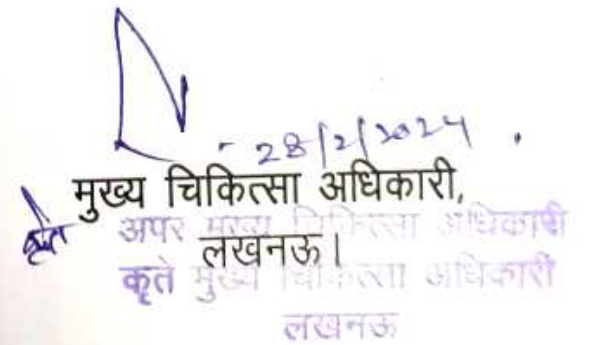 28/2/2024
मुख्य चिकित्सा अधिकारी,
कृते
अपर मुख्य चिकित्सा अधिकारी
लखनऊ।
कृते मुख्य चिकित्सा अधिकारी
लखनऊ